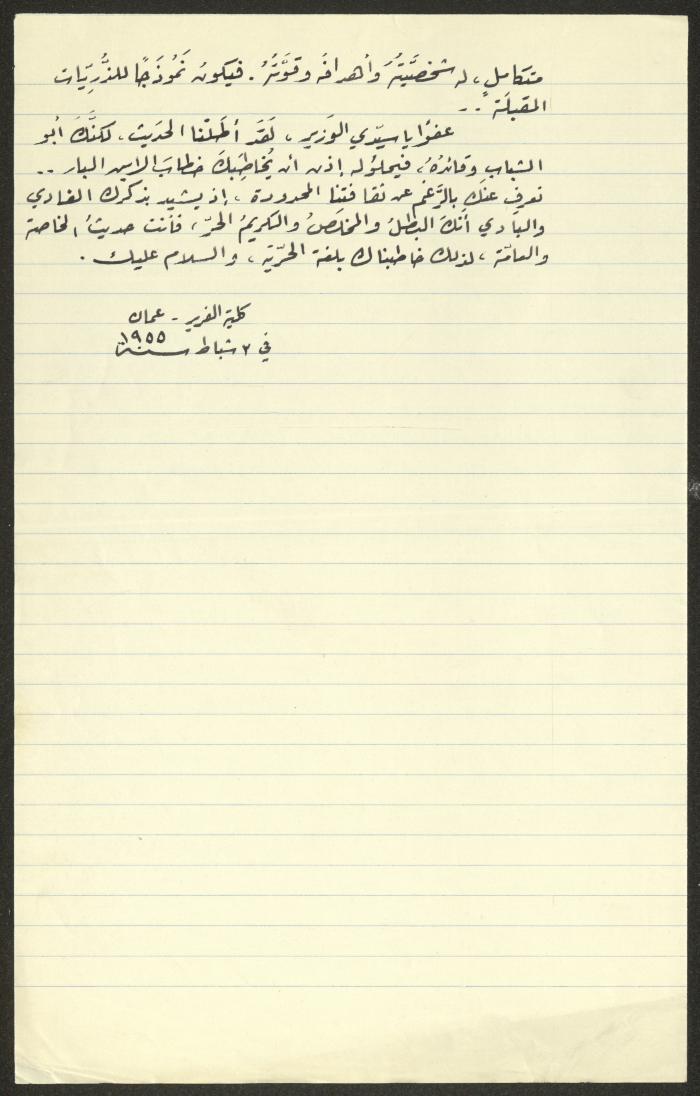 متكامل، له شخصيَّتُهُ وأهدافُه وقوَّتُهُ. فيكونُ نَمُوذَجًا للذُّرِيّات
المقبلَة ..
عفوًا يا سيّدي الوَزير، لَقَد أطَلنا الحَديث، لكنَّكَ أبو
الشباب وقائدُهُ، فيحلو له إذن أن يُخاطِبكَ خطابَ الابن البار ..
نعرِف عنك بالرَّغم عن ثقافتِنا المحدودة، إذ يشيد بذكرك الغادي
والبَادي أنكَ البَطلُ والمخلصُ والكريمُ الحرّ، فأنت حديثُ الخاصة
والعامّة، لذلك خاطبناك بلغة الحرّية، والسلام عليك.
كلية الفرير - عمان
في ٢ شباط سنة ١٩٥٥